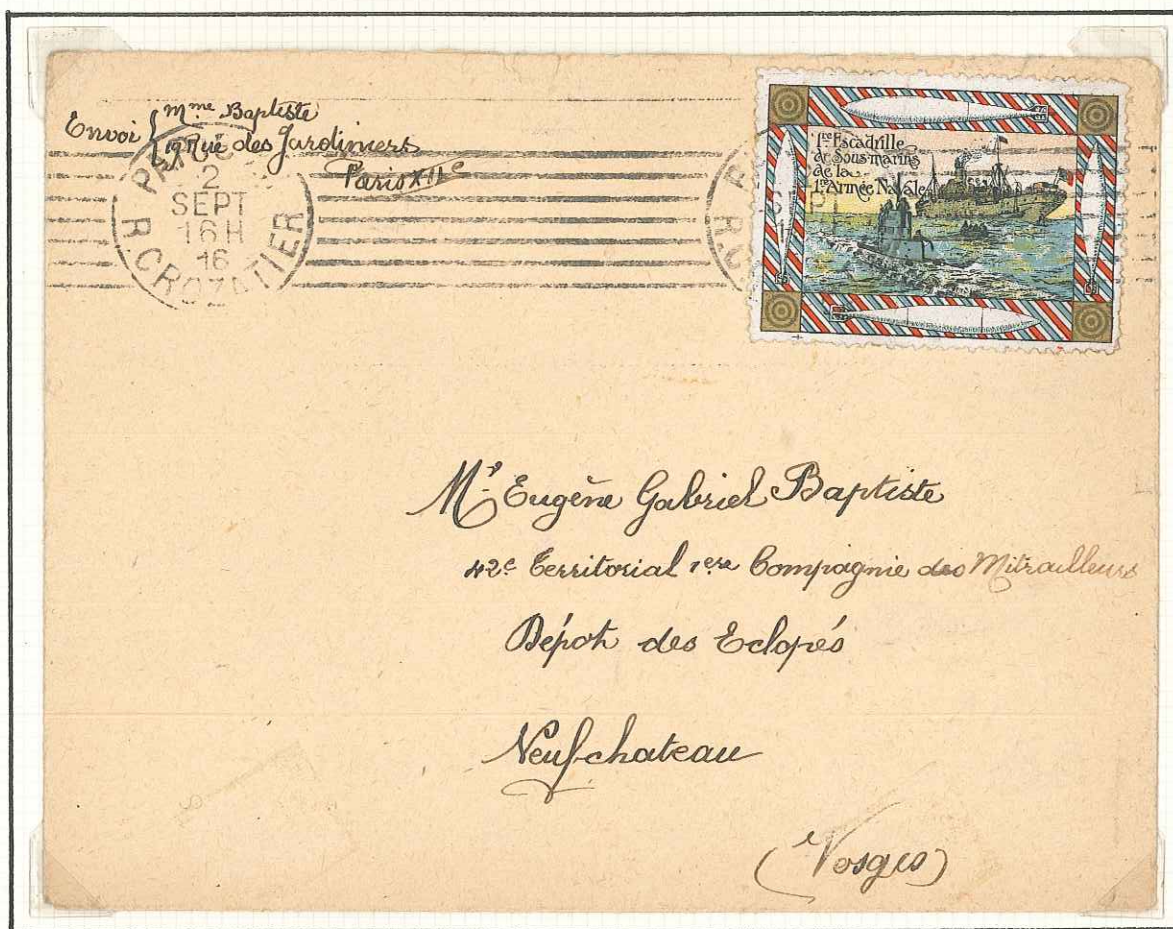 Envoi { Mme Baptiste
rue des Jardiniers
Paris XIIe
PARIS
2
SEPT
16H
16
R.CROZATIER
1re Escadrille
de Sous-marins
de la
1re Armée Navale
Mr Eugène Gabriel Baptiste
42e Territorial 1ere Compagnie des Mitrailleurs
Dépôt des Eclopés
Neufchateau
(Vosges)